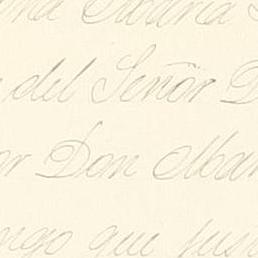 Maria
del Señor D
or Don Mar
ngo que jus